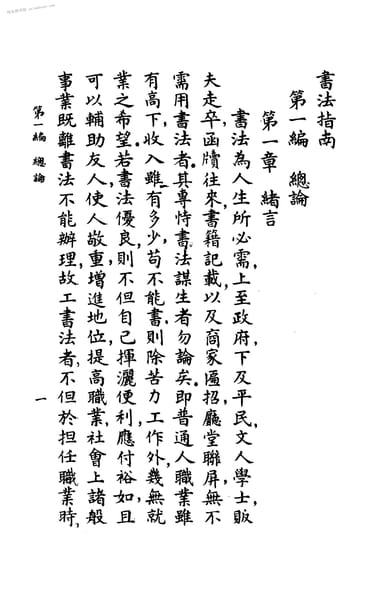 書法指南
第一編　總論
第一章　緒言
書法為人生所必需，上至政府，下及平民，文人學士，販
夫走卒，函牘往來，書籍記載，以及商家匾招，廳堂聯屏，無不
需用書法者，其專恃書法謀生者勿論矣，即普通人職業雖
有高下，收入雖有多少，苟不能書，則除苦力工作外，幾無就
業之希望，若書法優良，則不但自己揮灑便利，應付裕如，且
可以輔助友人，使人敬重，增進地位，提高職業，社會上諸般
事業既離書法不能辦理，故工書法者，不但於担任職業時，
第一編　總論
一